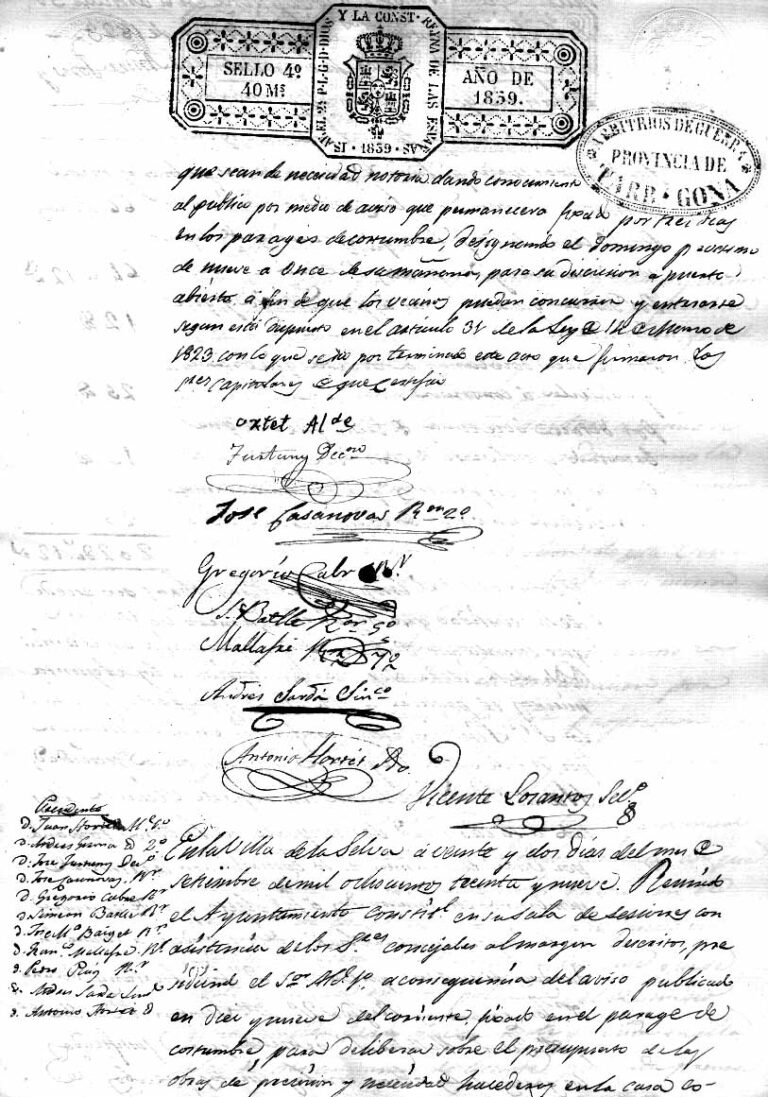 SELLO 4º
40 Ms
ISABEL 2ª P.L.G.D.DIOS Y LA CONST. REYNA DE LAS ESPAÑAS
· 1839 ·
AÑO DE
1839.
ARBITRIOS DE GUERRA
PROVINCIA DE
TARRAGONA
que sean de necesidad notoria dando conocimiento
al publico por medio de aviso que permanecera fixado por tres dias
en los parages de costumbre, designando el domingo proccimo
de nueve a once de su mañana, para su discucion a puerta
abierta a fin de que los vecinos puedan concurrir y enterarse
segun está dispuesto en el articulo 31 de la Ley de 14 de Marzo de
1823 con lo que se dio por terminado este acto que firmaron los
Sres Capitulares de que Certifico
Ortet Alde
Fustuny Decno
Jose Casanovas Ror 2º
Gregorio Cabré Rr
S. Batlle Ror 5º
Mallafré
Andres Sardá Sinco
Antonio Hortét
Vicente Losantos
Presidente
D. Juan
D. Andres
D. Jose Fustuny Decº
D. Jose Casanovas Rr
D. Gregorio Cabré Rr
D. Simeon Batlle Rr
D. Jose Mª Baiget Rr
D. Franco Mallafré Rr
D. Pedro Puig Rr
D. Andres Sardá Sind
D. Antonio
En la Villa de la Selva á veinte y dos dias del mes de
setiembre de mil ochocientos treinta y nueve. Reunido
el Ayuntamiento Constitl en su sala de sesiones con
asistencia de los Sres concejales al margen descritos, pre
sidiend el Sor Ald. 1º a consequencia del aviso publicado
en diez y nueve del corriente fixado en el parage de
costumbre, para deliberar sobre el presupuesto de las
obras de precision y necesidad hacederas en la casa co-